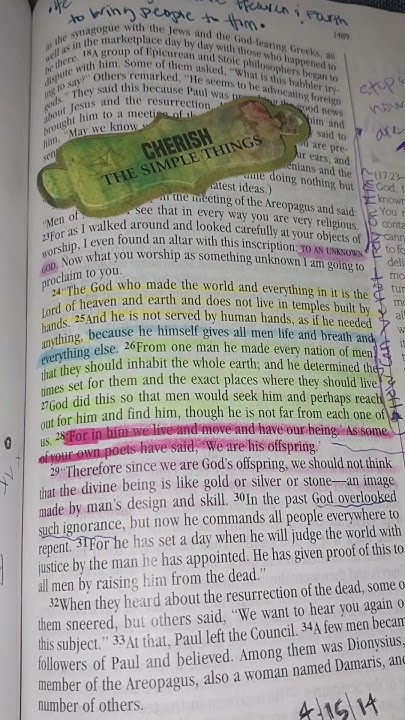 Heaven & Earth
to bring people to Him.
1489
in the synagogue with the Jews and the God-fearing Greeks, as
well as in the marketplace day by day with those who happened to
be there. 18A group of Epicurean and Stoic philosophers began to
dispute with him. Some of them asked, "What is this babbler try-
ing to say?" Others remarked, "He seems to be advocating foreign
gods." They said this because Paul was good news
about Jesus and the resurrection him and
brought him to a meeting of said to
him, "May we know ou are pre-
ur ears, and
nians and the
doing nothing but
latest ideas.)
CHERISH
THE SIMPLE THINGS
in the meeting of the Areopagus and said:
"Men of see that in every way you are very religious.
23For as I walked around and looked carefully at your objects of
worship, I even found an altar with this inscription: TO AN UNKNOWN
GOD. Now what you worship as something unknown I am going to
proclaim to you.
24"The God who made the world and everything in it is the
Lord of heaven and earth and does not live in temples built by
hands. 25And he is not served by human hands, as if he needed
anything, because he himself gives all men life and breath and
everything else. 26From one man he made every nation of men,
that they should inhabit the whole earth; and he determined the
times set for them and the exact places where they should live.
27God did this so that men would seek him and perhaps reach
out for him and find him, though he is not far from each one of
us. 28'For in him we live and move and have our being.' As some
of your own poets have said, 'We are his offspring.'
29"Therefore since we are God's offspring, we should not think
that the divine being is like gold or silver or stone—an image
made by man's design and skill. 30In the past God overlooked
such ignorance, but now he commands all people everywhere to
repent. 31For he has set a day when he will judge the world with
justice by the man he has appointed. He has given proof of this to
all men by raising him from the dead."
32When they heard about the resurrection of the dead, some o
them sneered, but others said, "We want to hear you again o
this subject." 33At that, Paul left the Council. 34A few men becam
followers of Paul and believed. Among them was Dionysius,
member of the Areopagus, also a woman named Damaris, and
number of others.
4/15/14